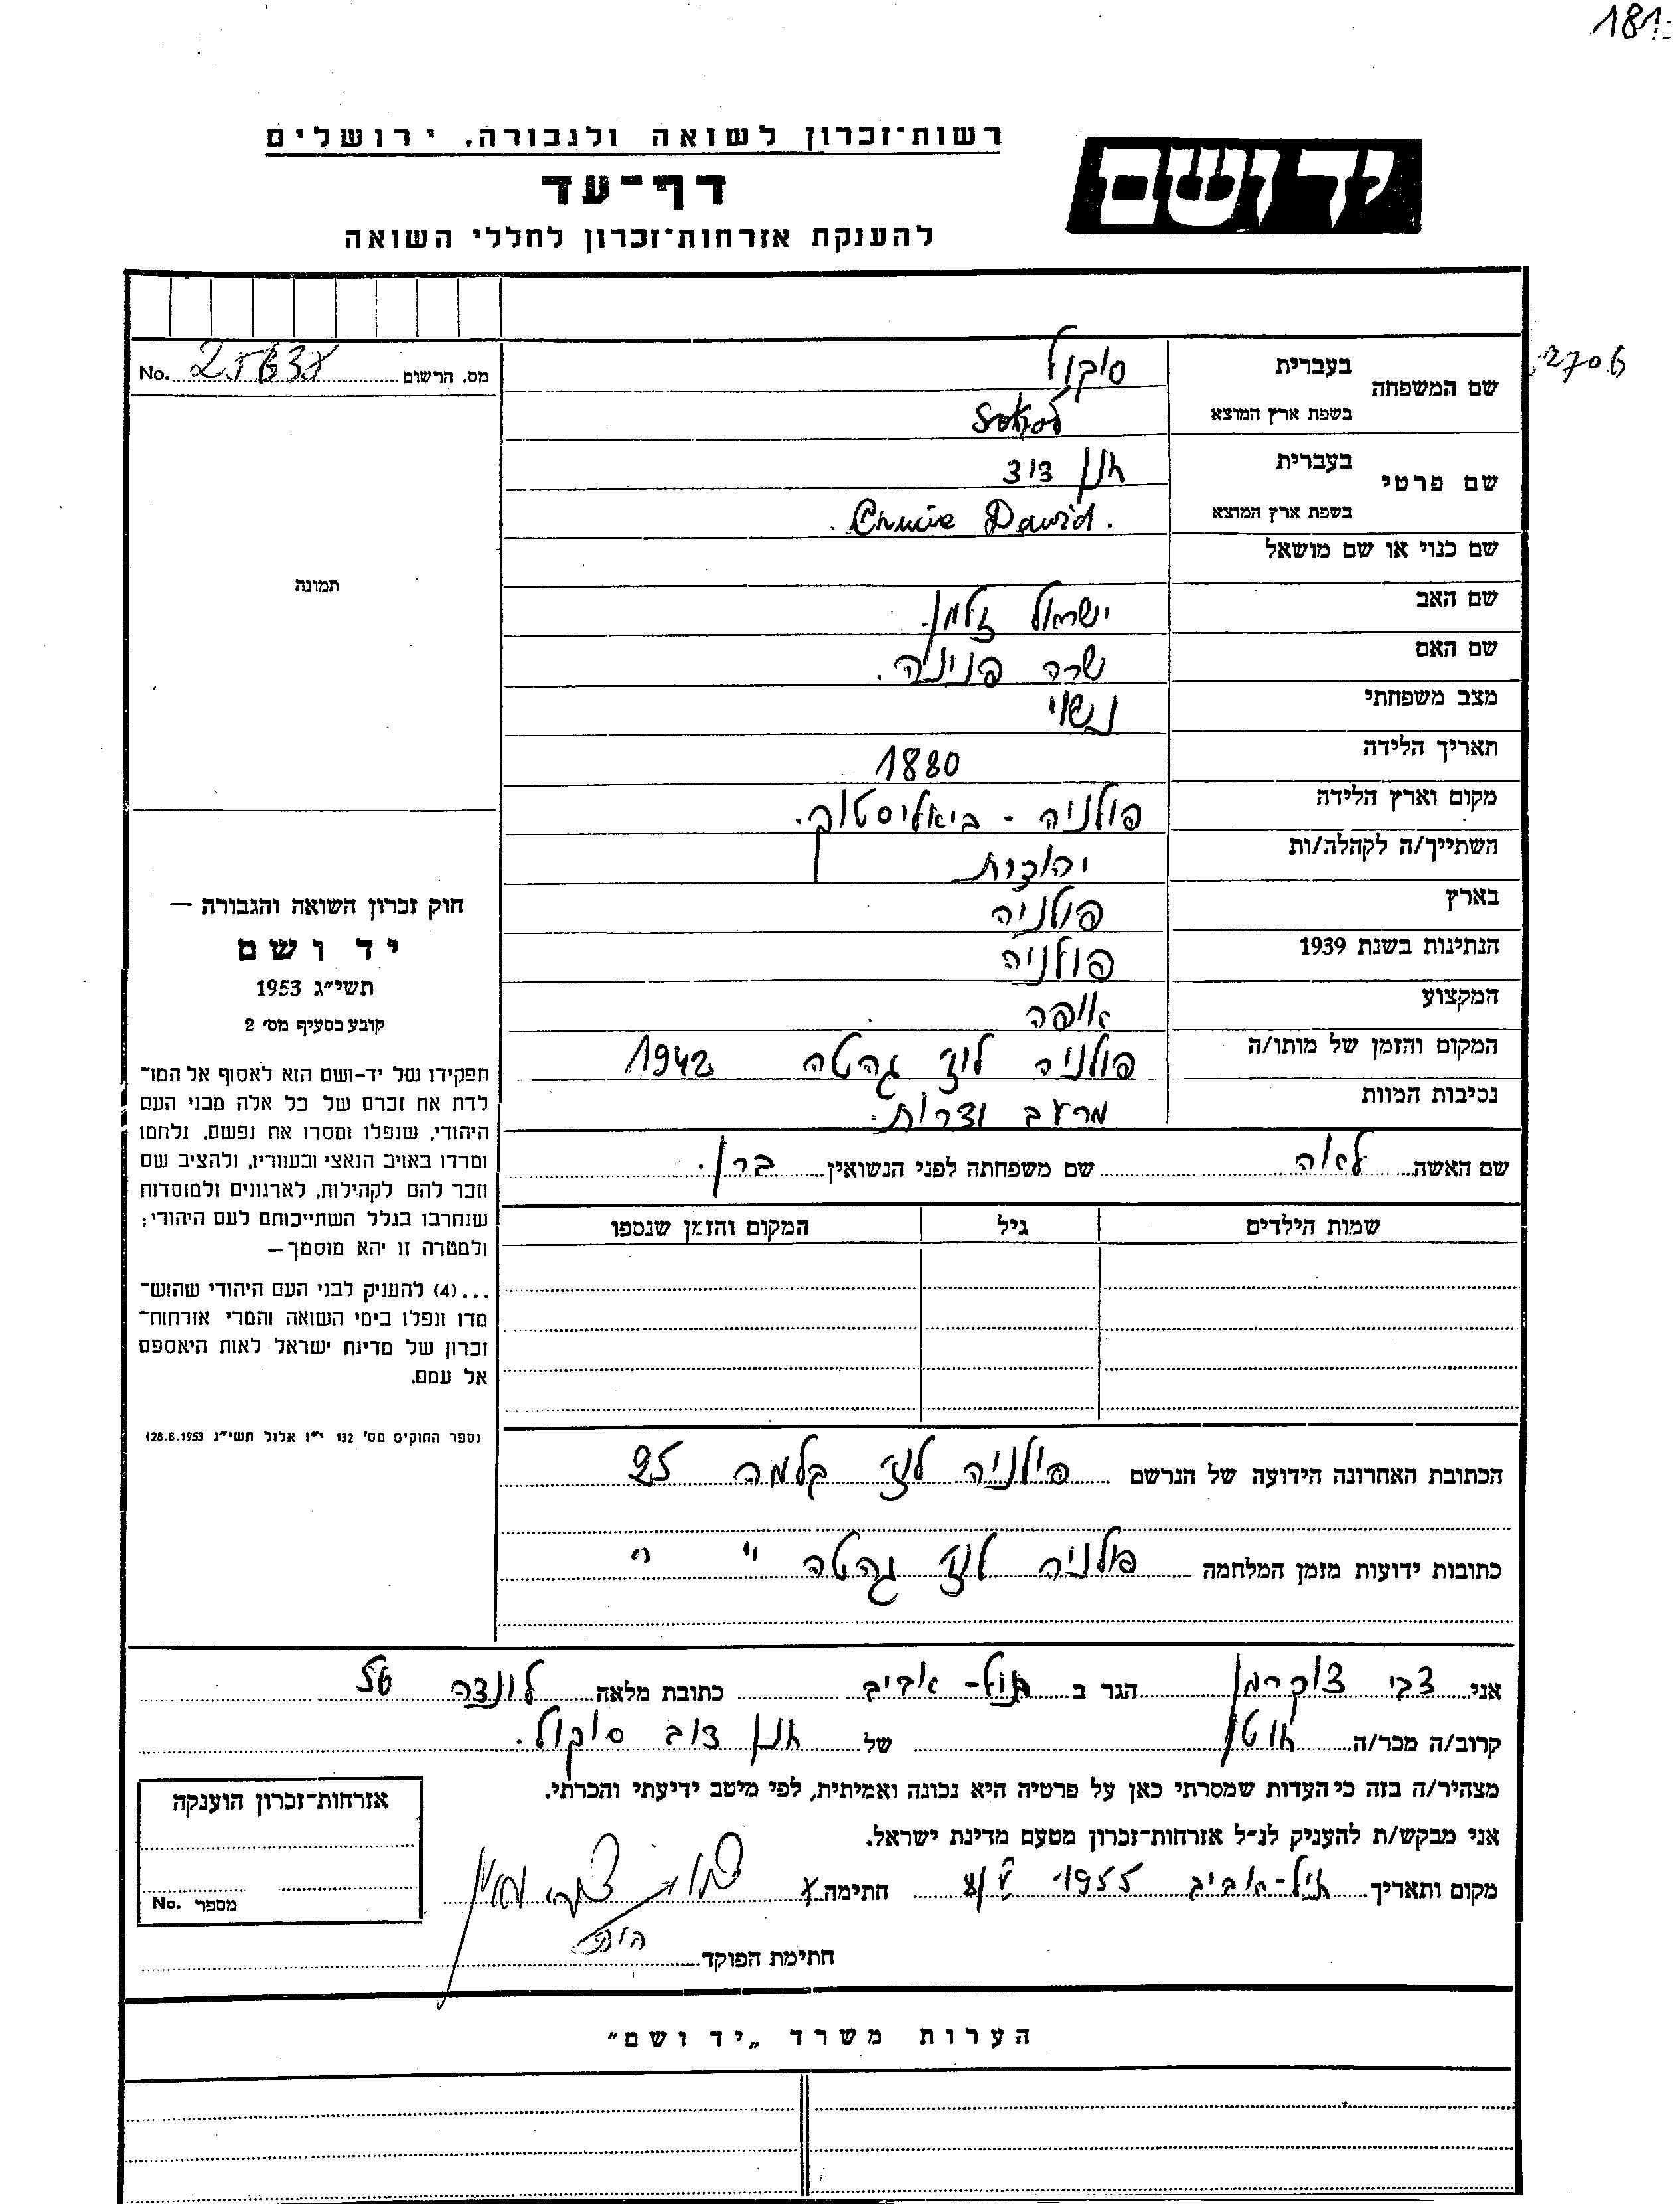 181
רשות־זכרון לשואה ולגבורה, ירושלים
יד ושם
דף־עד
להענקת אזרחות־זכרון לחללי השואה
מס. הרשום No. 25638
2706
שם המשפחה
בעברית סוקול
בשפת ארץ המוצא Sokoł
שם פרטי
בעברית חנן דוד
בשפת ארץ המוצא Dawid.
שם כנוי או שם מושאל
שם האב ישראל זלמן.
שם האם שרה פנינה.
מצב משפחתי נשוי
תאריך הלידה 1880
מקום וארץ הלידה פולניה - ביאליסטוק.
השתייך/ה לקהלה/ות יהודית
בארץ פולניה
הנתינות בשנת 1939 פולניה
המקצוע אופה
המקום והזמן של מותו/ה פולניה לודז גהטה 1942
נסיבות המוות מרעב וצרות.
שם האשה לאה שם משפחתה לפני הנשואין ברן.
שמות הילדים גיל המקום והזמן שנספו
הכתובת האחרונה הידועה של הנרשם פולניה לודז 25
כתובות ידועות מזמן המלחמה פולניה לודז גהטה " "
תמונה
חוק זכרון השואה והגבורה —
יד ושם
תשי"ג 1953
קובע בסעיף מס' 2
תפקידו של יד-ושם הוא לאסוף אל המו־
לדת את זכרם של כל אלה מבני העם
היהודי, שנפלו ומסרו את נפשם, נלחמו
ומרדו באויב הנאצי ובעוזריו, ולהציב שם
וזכר להם לקהילות, לארגונים ולמוסדות
שנחרבו בגלל השתייכותם לעם היהודי;
ולמטרה זו יהא מוסמך —
...(4) להענק לבני העם היהודי שהוש־
מדו ונפלו בימי השואה והמרי אזרחות־
זכרון של מדינת ישראל לאות היאספם
אל עמם.
(ספר החוקים מס' 132 י"ז אלול תשי"ג 28.8.1953)
אני צבי צוקרמן הגר ב תל-אביב כתובת מלאה 56
קרוב/ה מכר/ה של חנן דוב סוקול.
מצהיר/ה בזה כי העדות שמסרתי כאן על פרטיה היא נכונה ואמיתית, לפי מיטב ידיעתי והכרתי.
אני מבקש/ת להעניק לנ"ל אזרחות־זכרון מטעם מדינת ישראל.
מקום ותאריך תל-אביב 1955 חתימה
חתימת הפוקד
אזרחות־זכרון הוענקה
מספר No.
הערות משרד „יד ושם"